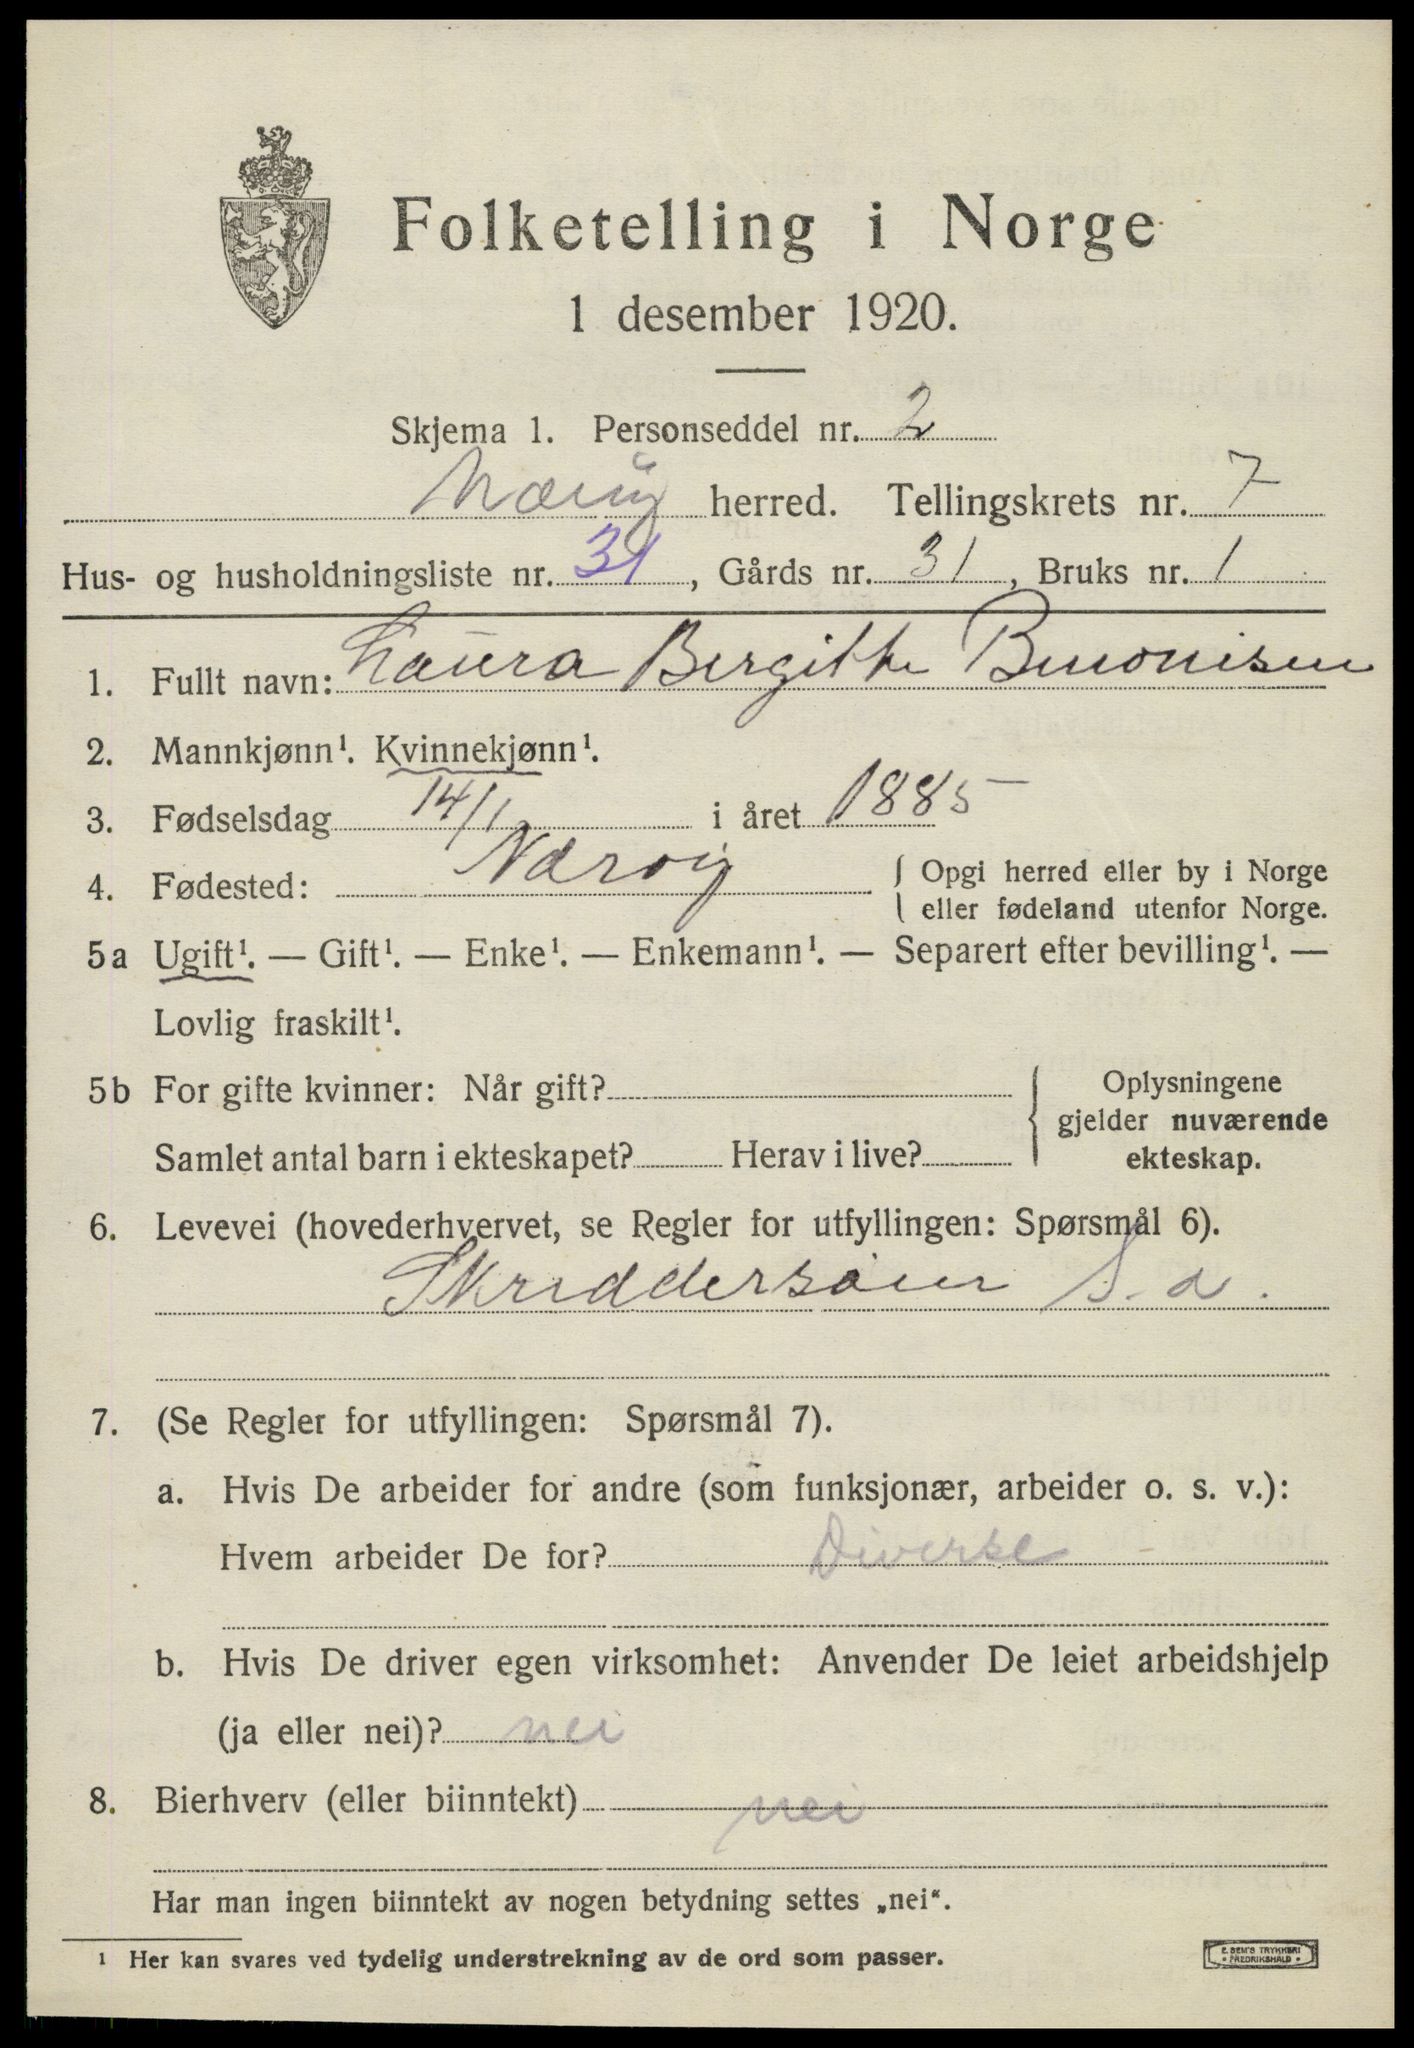 Folketelling i Norge
1 desember 1920.
Skjema 1. Personseddel nr. 2
Nærøy herred. Tellingskrets nr. 7
Hus- og husholdningsliste nr. 31, Gårds nr. 31, Bruks nr. 1
1. Fullt navn: Laura Bergitte Benonisen
2. Mannkjønn¹. Kvinnekjønn¹.
3. Fødselsdag 14/1 i året 1885
4. Fødested: Nærøy { Opgi herred eller by i Norge
eller fødeland utenfor Norge.
5a Ugift¹. — Gift¹. — Enke¹. — Enkemann¹. — Separert efter bevilling¹. —
Lovlig fraskilt¹.
5b For gifte kvinner: Når gift?
Samlet antal barn i ekteskapet? Herav i live?
{ Oplysningene
gjelder nuværende
ekteskap.
6. Levevei (hovederhvervet, se Regler for utfyllingen: Spørsmål 6).
Skreddersaum S. a.
7. (Se Regler for utfyllingen: Spørsmål 7).
a. Hvis De arbeider for andre (som funksjonær, arbeider o. s. v.):
Hvem arbeider De for? Diverse
b. Hvis De driver egen virksomhet: Anvender De leiet arbeidshjelp
(ja eller nei)? nei
8. Bierhverv (eller biinntekt) nei
Har man ingen biinntekt av nogen betydning settes „nei“.
¹ Her kan svares ved tydelig understrekning av de ord som passer.
E. SEM'S TRYKKERI
• FREDRIKSHALD •